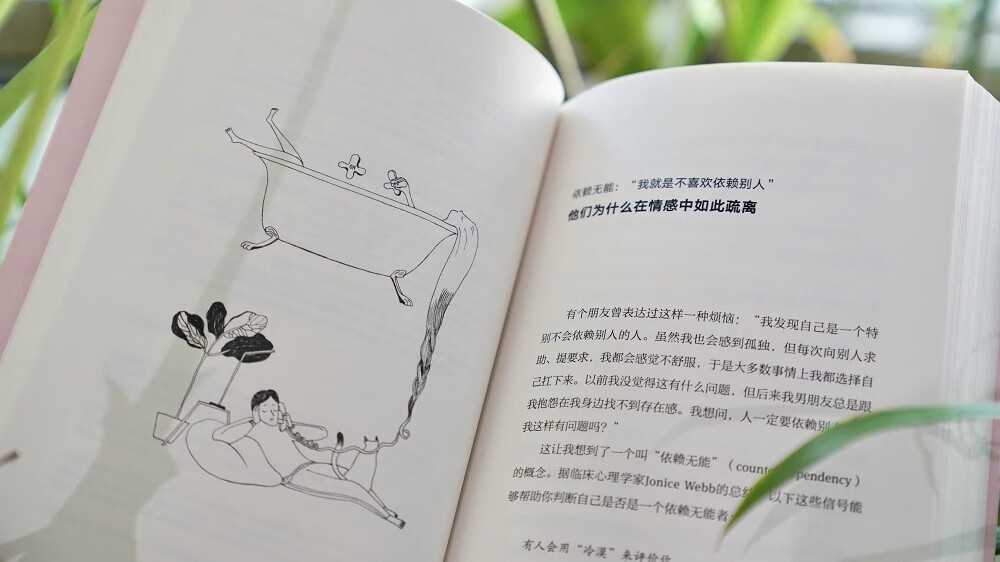 依赖无能：“我就是不喜欢依赖别人”
他们为什么在情感中如此疏离
有个朋友曾表达过这样一种烦恼：“我发现自己是一个特
别不会依赖别人的人。虽然我也会感到孤独，但每次向别人求
助、提要求，我都会感觉不舒服，于是大多数事情上我都选择自
己扛下来。以前我没觉得这有什么问题，但后来我男朋友总是跟
我抱怨在我身边找不到存在感。我想问，人一定要依赖别
我这样有问题吗？”
这让我想到了一个叫“依赖无能”（ pendency）
的概念。据临床心理学家Jonice Webb的总结 以下这些信号能
够帮助你判断自己是否是一个依赖无能者
有人会用“冷漠”来评价你